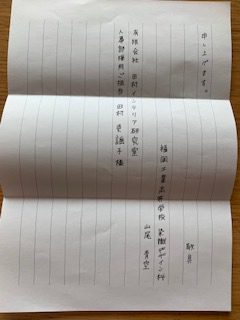 申し上げます。
敬具
福岡工業高等学校 染織デザイン科
山尾 青空
有限会社 田村インテリア研究室
人事部採用ご担当 田村 様